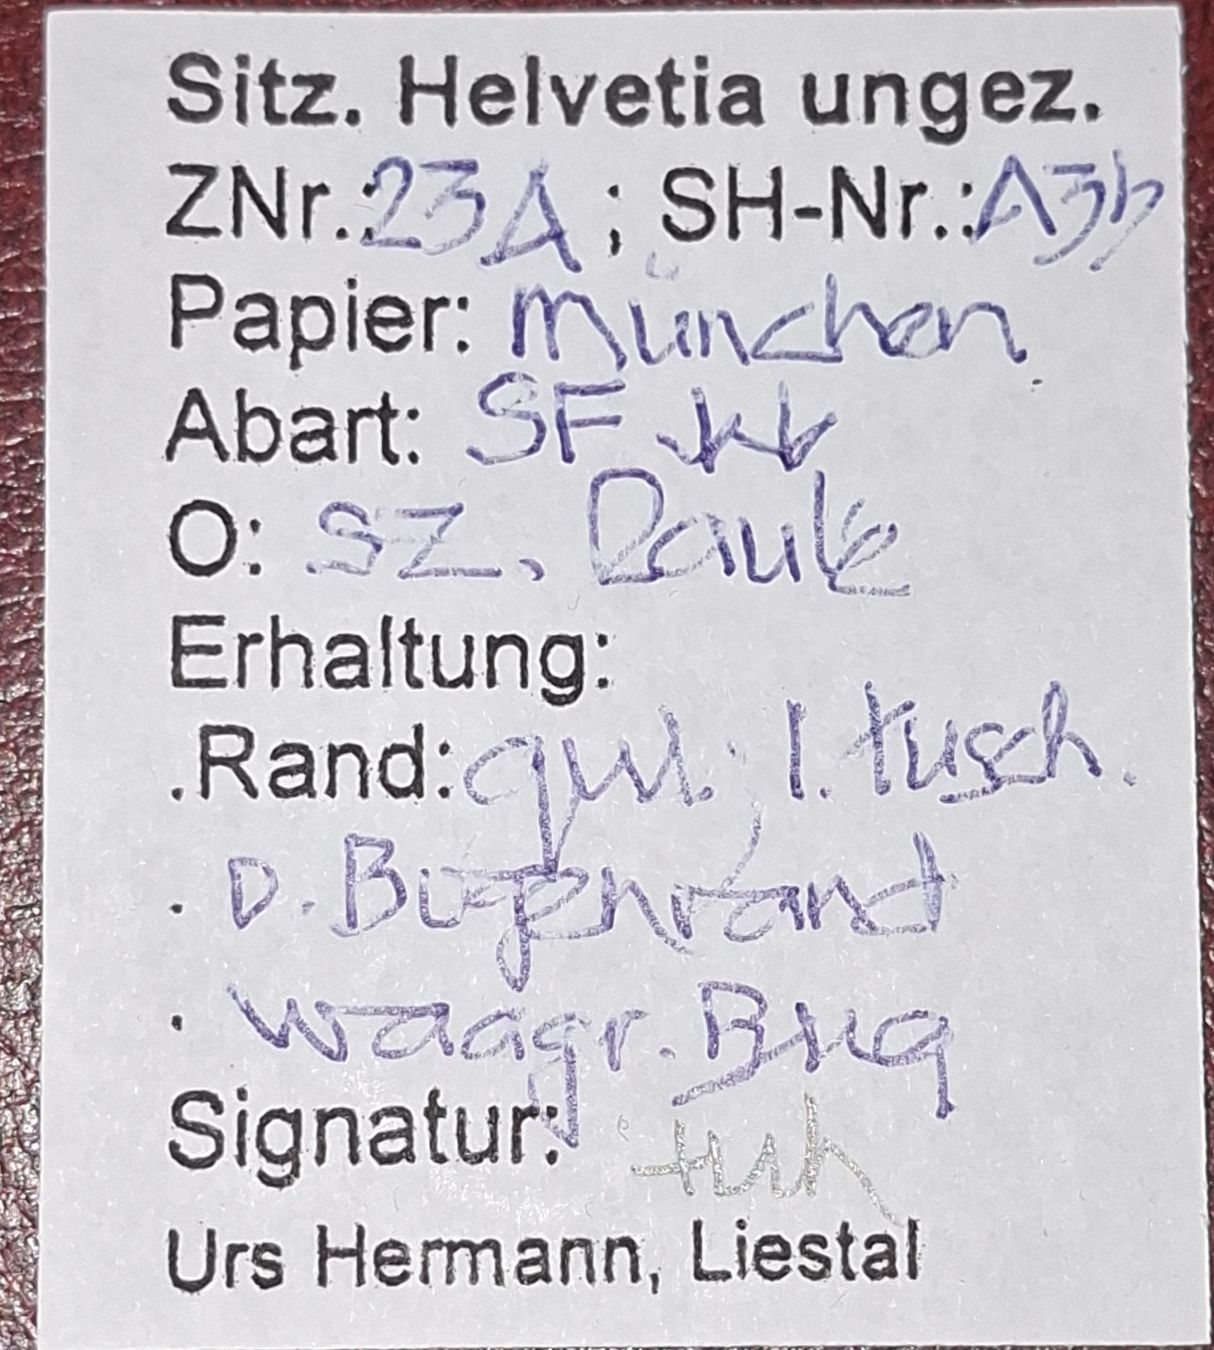 Sitz. Helvetia ungez.
ZNr.: 23A ; SH-Nr.: A3b
Papier: München
Abart: SF
O: SZ. Raute
Erhaltung:
.Rand: l. tusch.
. D. Bogenrand
. waagr. Bug
Signatur:
Urs Hermann, Liestal